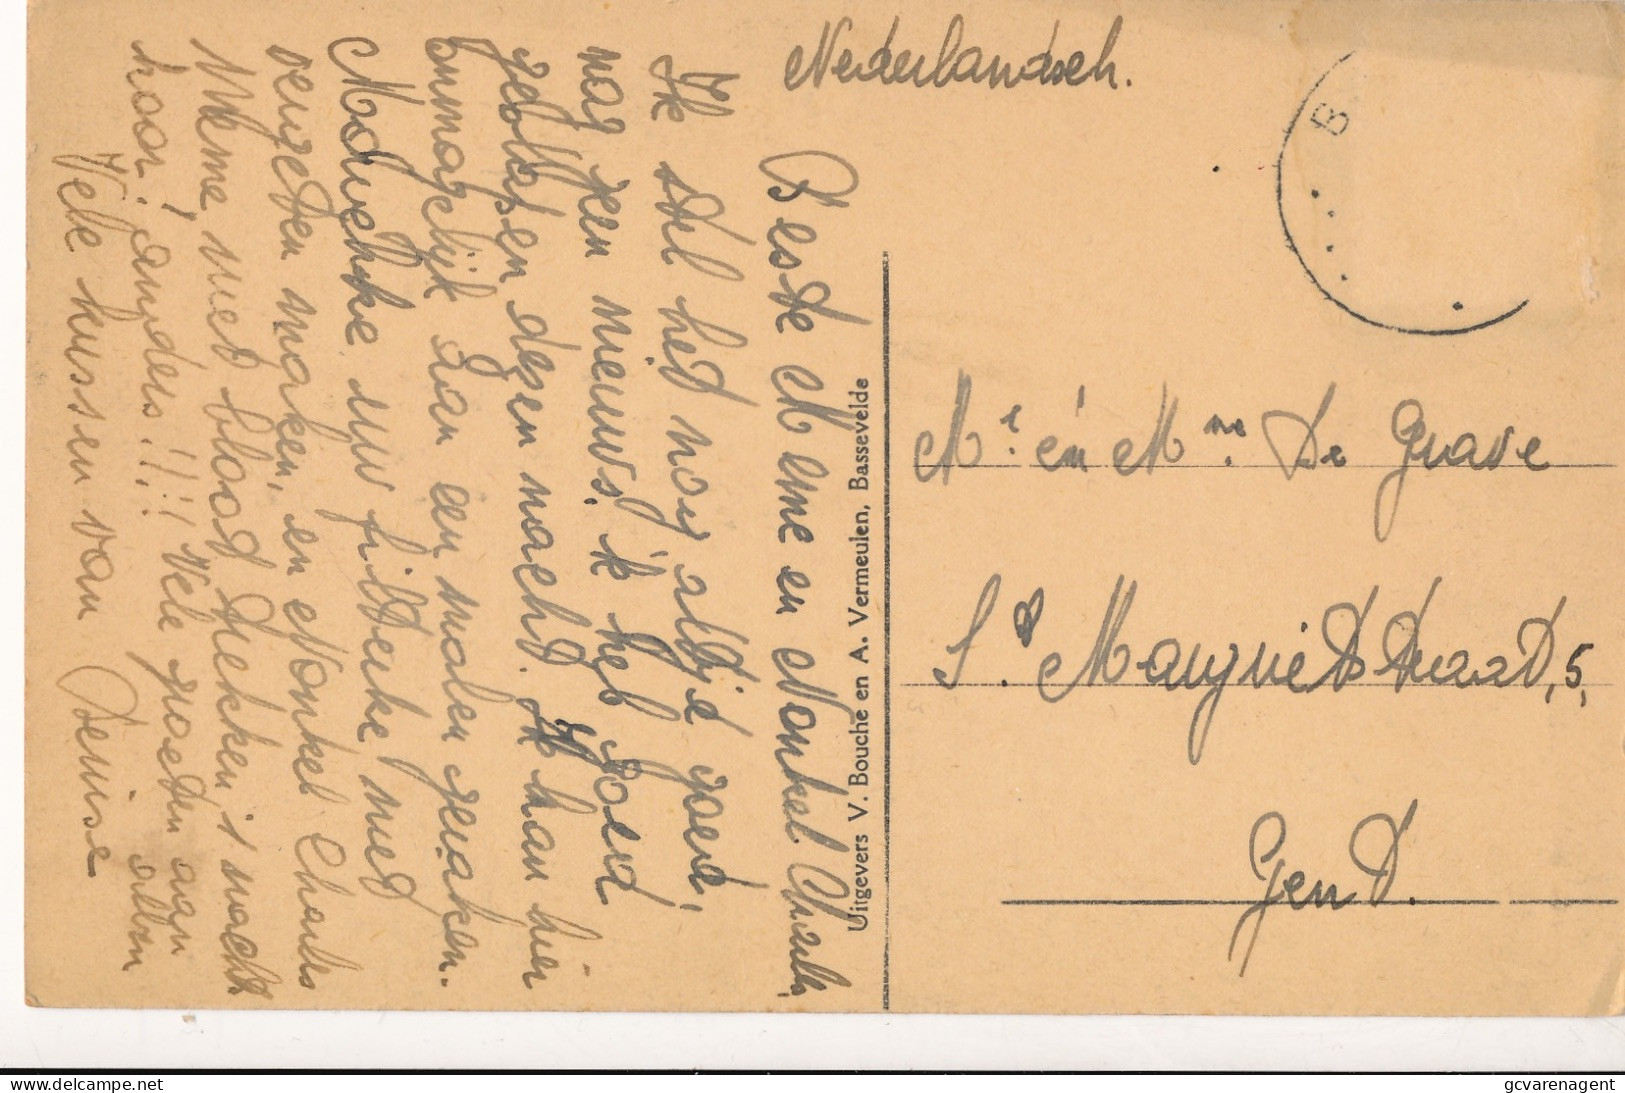 Nederlandsch.
Beste Meme en Nonkel Charles,
Ik stel het nog altijd goed,
nog geen nieuws. 'k heb goed
geslapen dezen nacht. Ik kan hier
onmogelijk aan een malen geraken.
Moeveke uw filteke met
vergeten maken, en Nonkel Charles
Meme, niet bloot trekken 's nachts
hoor! anders!!!! Vele groeten aan
allen
Vele kussen van Denise
Uitgevers V. Bouche en A. Vermeulen, Bassevelde
B
Mr. én Mme. De Grave
St. Margrietstraat, 5,
Gent.
delcampe.net
gcvarenagent